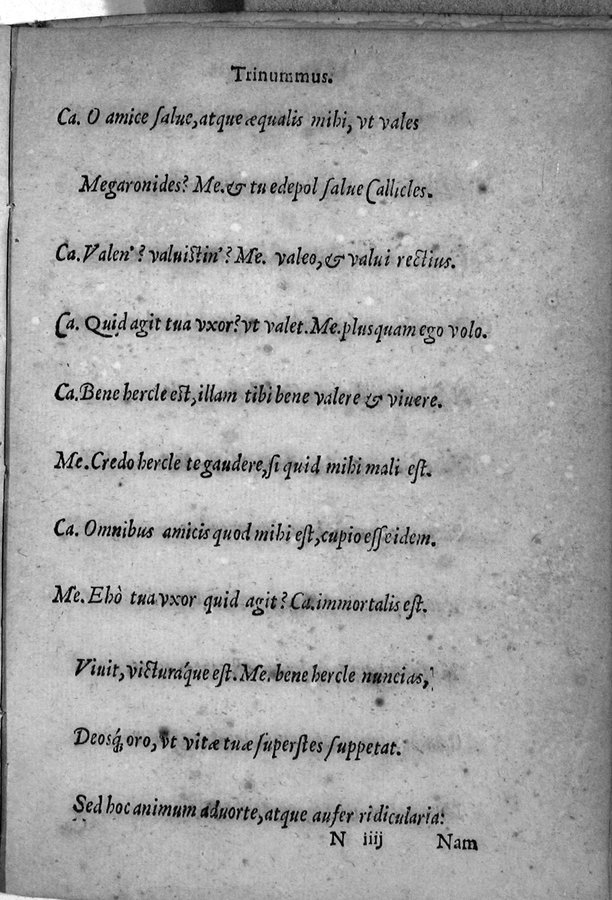 Trinummus.
Ca. O amice ſalue, atque æqualis mihi, vt vales
Megaronides? Me. & tu edepol ſalue Callicles.
Ca. Valen'? valuiſtin'? Me. valeo, & valui rectius.
Ca. Quid agit tua vxor? vt valet. Me. plus quam ego volo.
Ca. Bene hercle eſt, illam tibi bene valere & viuere.
Me. Credo hercle te gaudere, ſi quid mihi mali eſt.
Ca. Omnibus amicis quod mihi eſt, cupio eſſe idem.
Me. Ehò tua vxor quid agit? Ca. immortalis eſt.
Viuit, victuráque eſt. Me. bene hercle nuncias,
Deosq́; oro, vt vitæ tuæ ſuperſtes ſuppetat.
Sed hoc animum aduorte, atque aufer ridicularia:
N iiij Nam